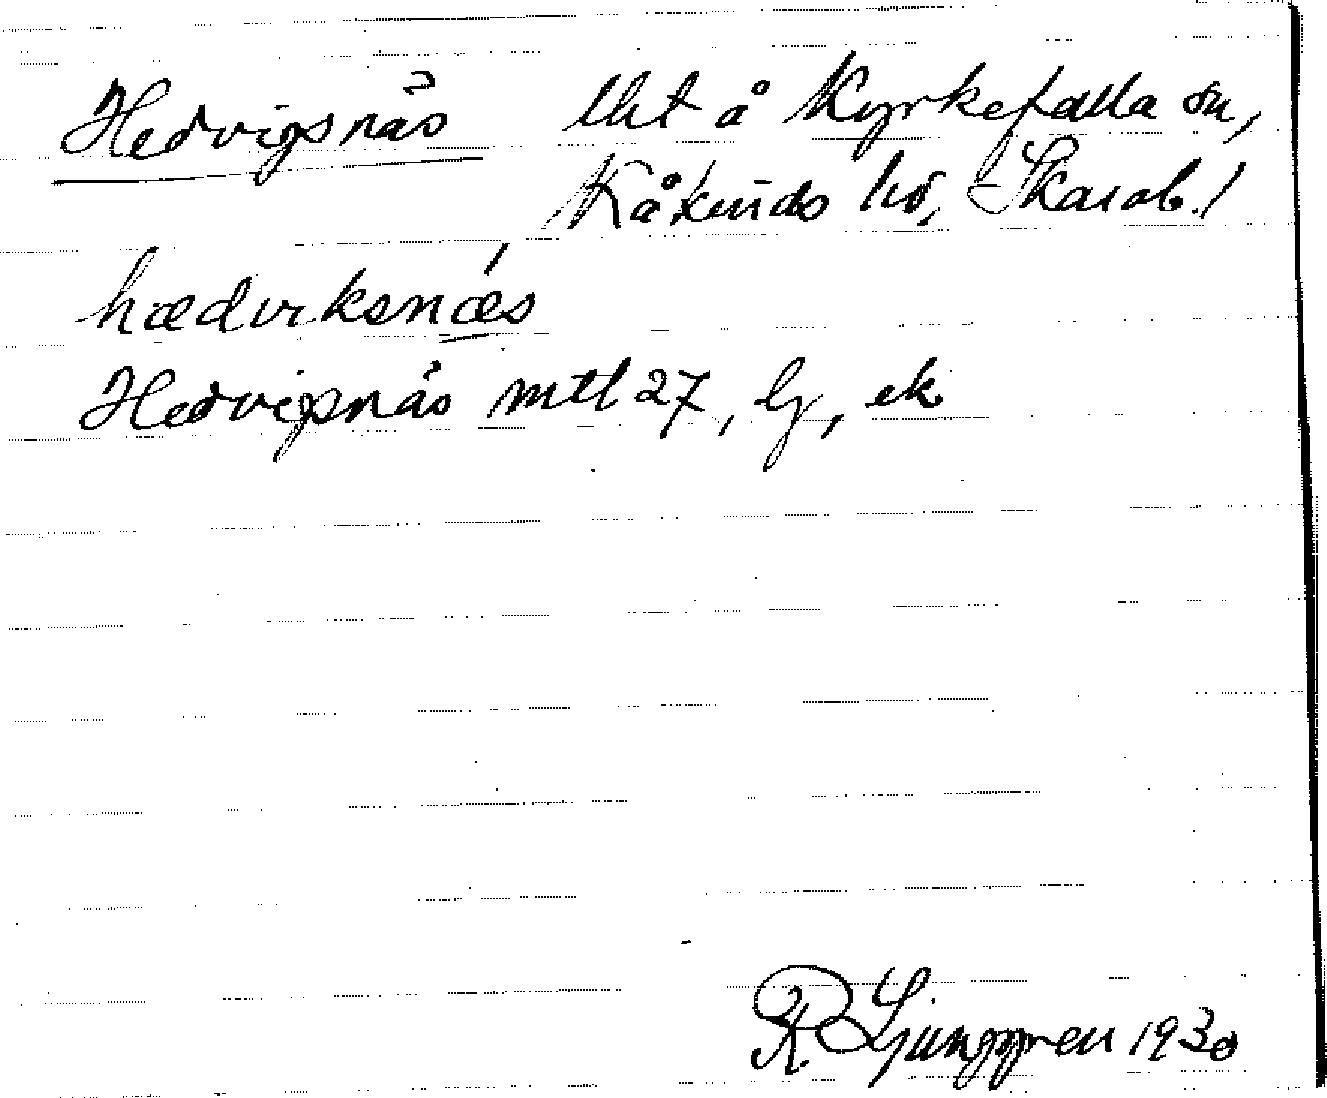 Hedvigsnäs lht å Kyrkefalla sn,
Kåkinds hd, Skarab. l
hædviksnæs
Hedvigsnäs mtl 27, lj, ek
R Ljunggren 1930